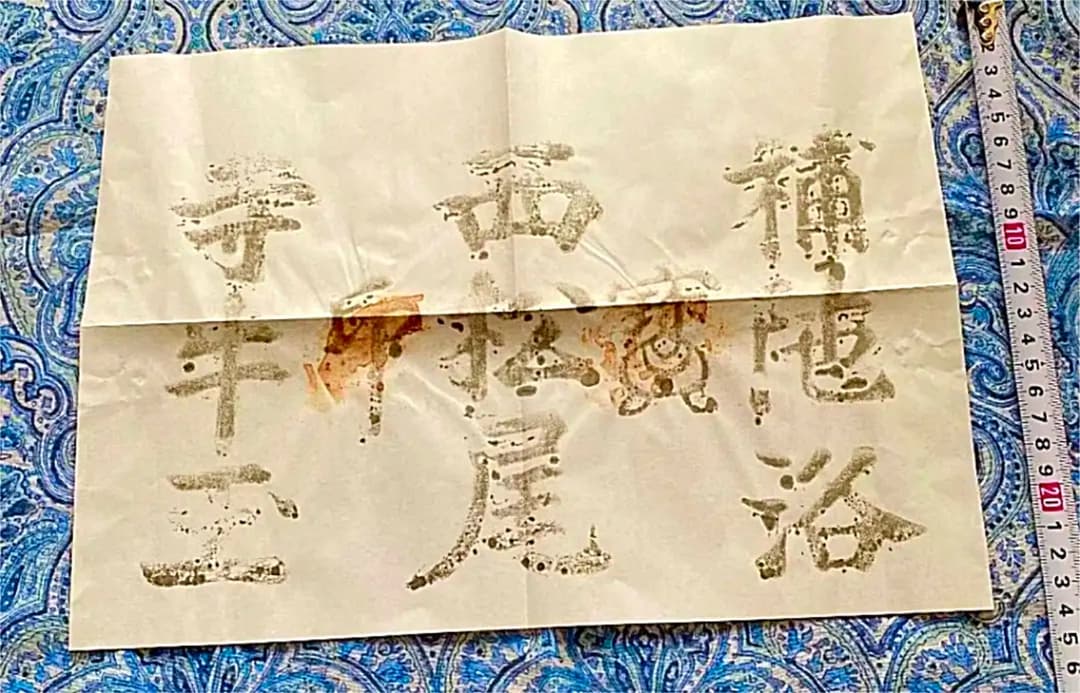 補陁洛
西松尾
寺牛玉
2 3 4 5 6 7 8 9 10 1 2 3 4 5 6 7 8 9 20 1 2 3 4 5 6